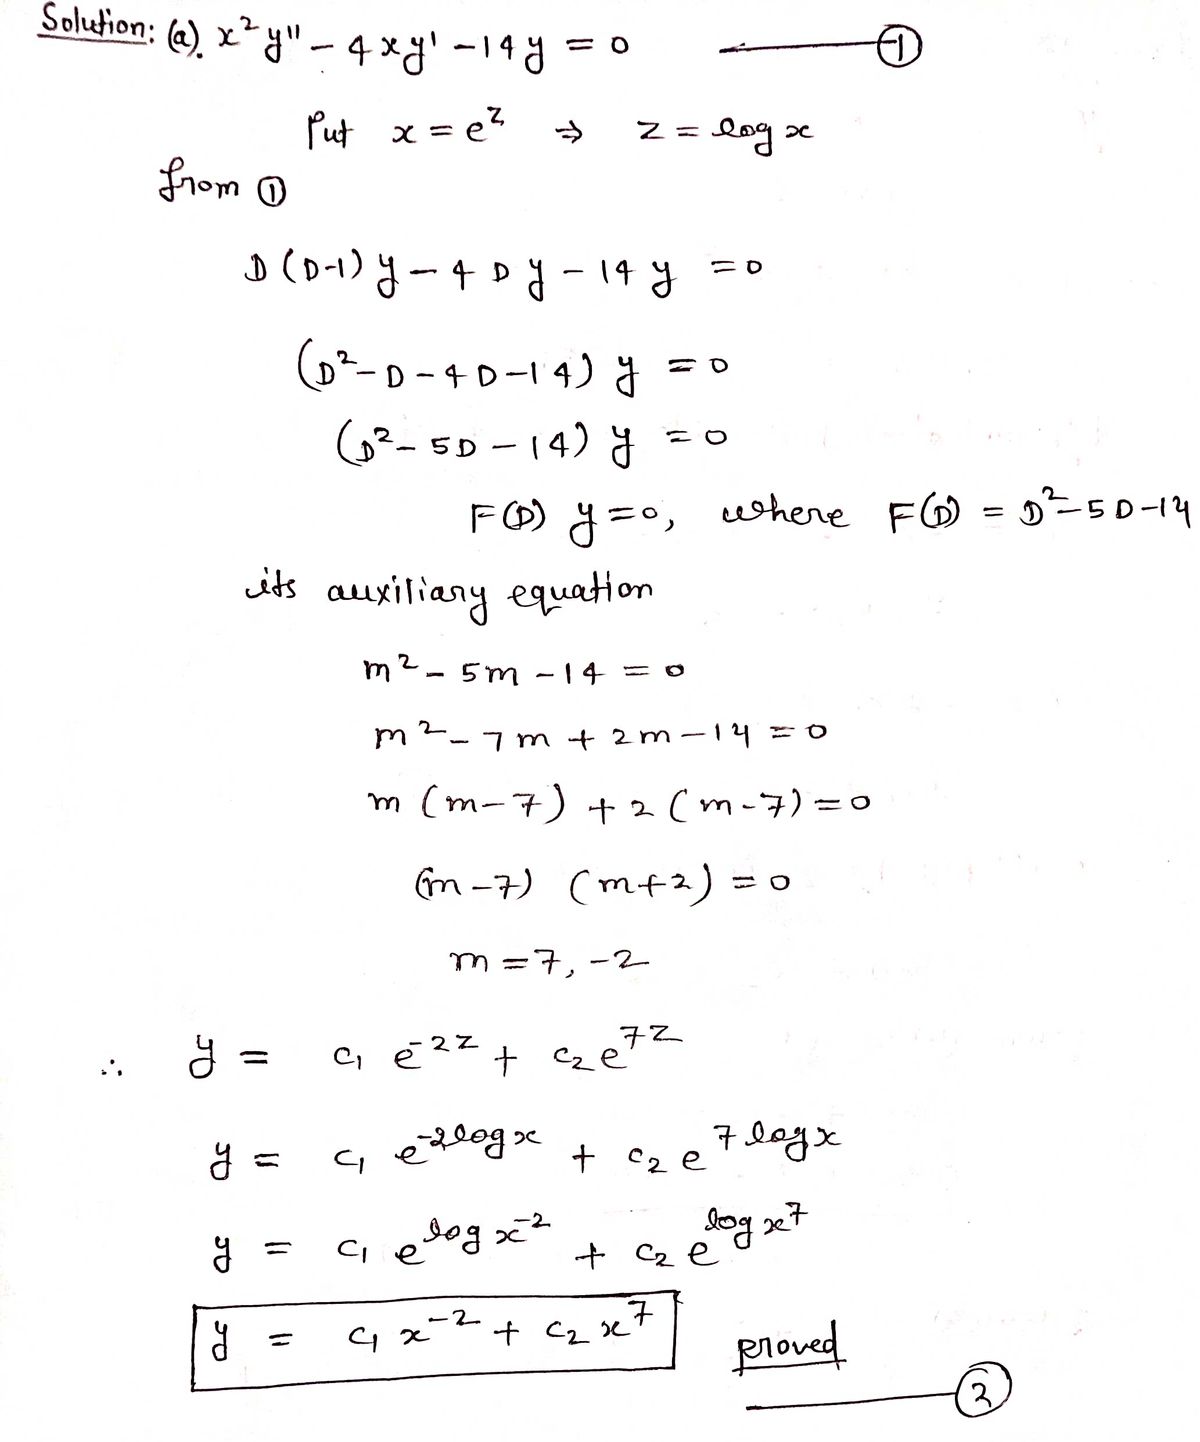 Solution: (a). x² y'' - 4xy' - 14y = 0 ①
Put x = e^z ⇒ z = log x
from ①
D(D-1)y - 4Dy - 14y = 0
(D² - D - 4D - 14) y = 0
(D² - 5D - 14) y = 0
F(D) y = 0, where F(D) = D² - 5D - 14
its auxiliary equation
m² - 5m - 14 = 0
m² - 7m + 2m - 14 = 0
m (m - 7) + 2 (m - 7) = 0
(m - 7) (m + 2) = 0
m = 7, -2
∴ y = c₁ e^-2z + c₂ e^7z
y = c₁ e^-2log x + c₂ e^7 log x
y = c₁ e^log x^-2 + c₂ e^log x^7
y = c₁ x^-2 + c₂ x^7 proved
②